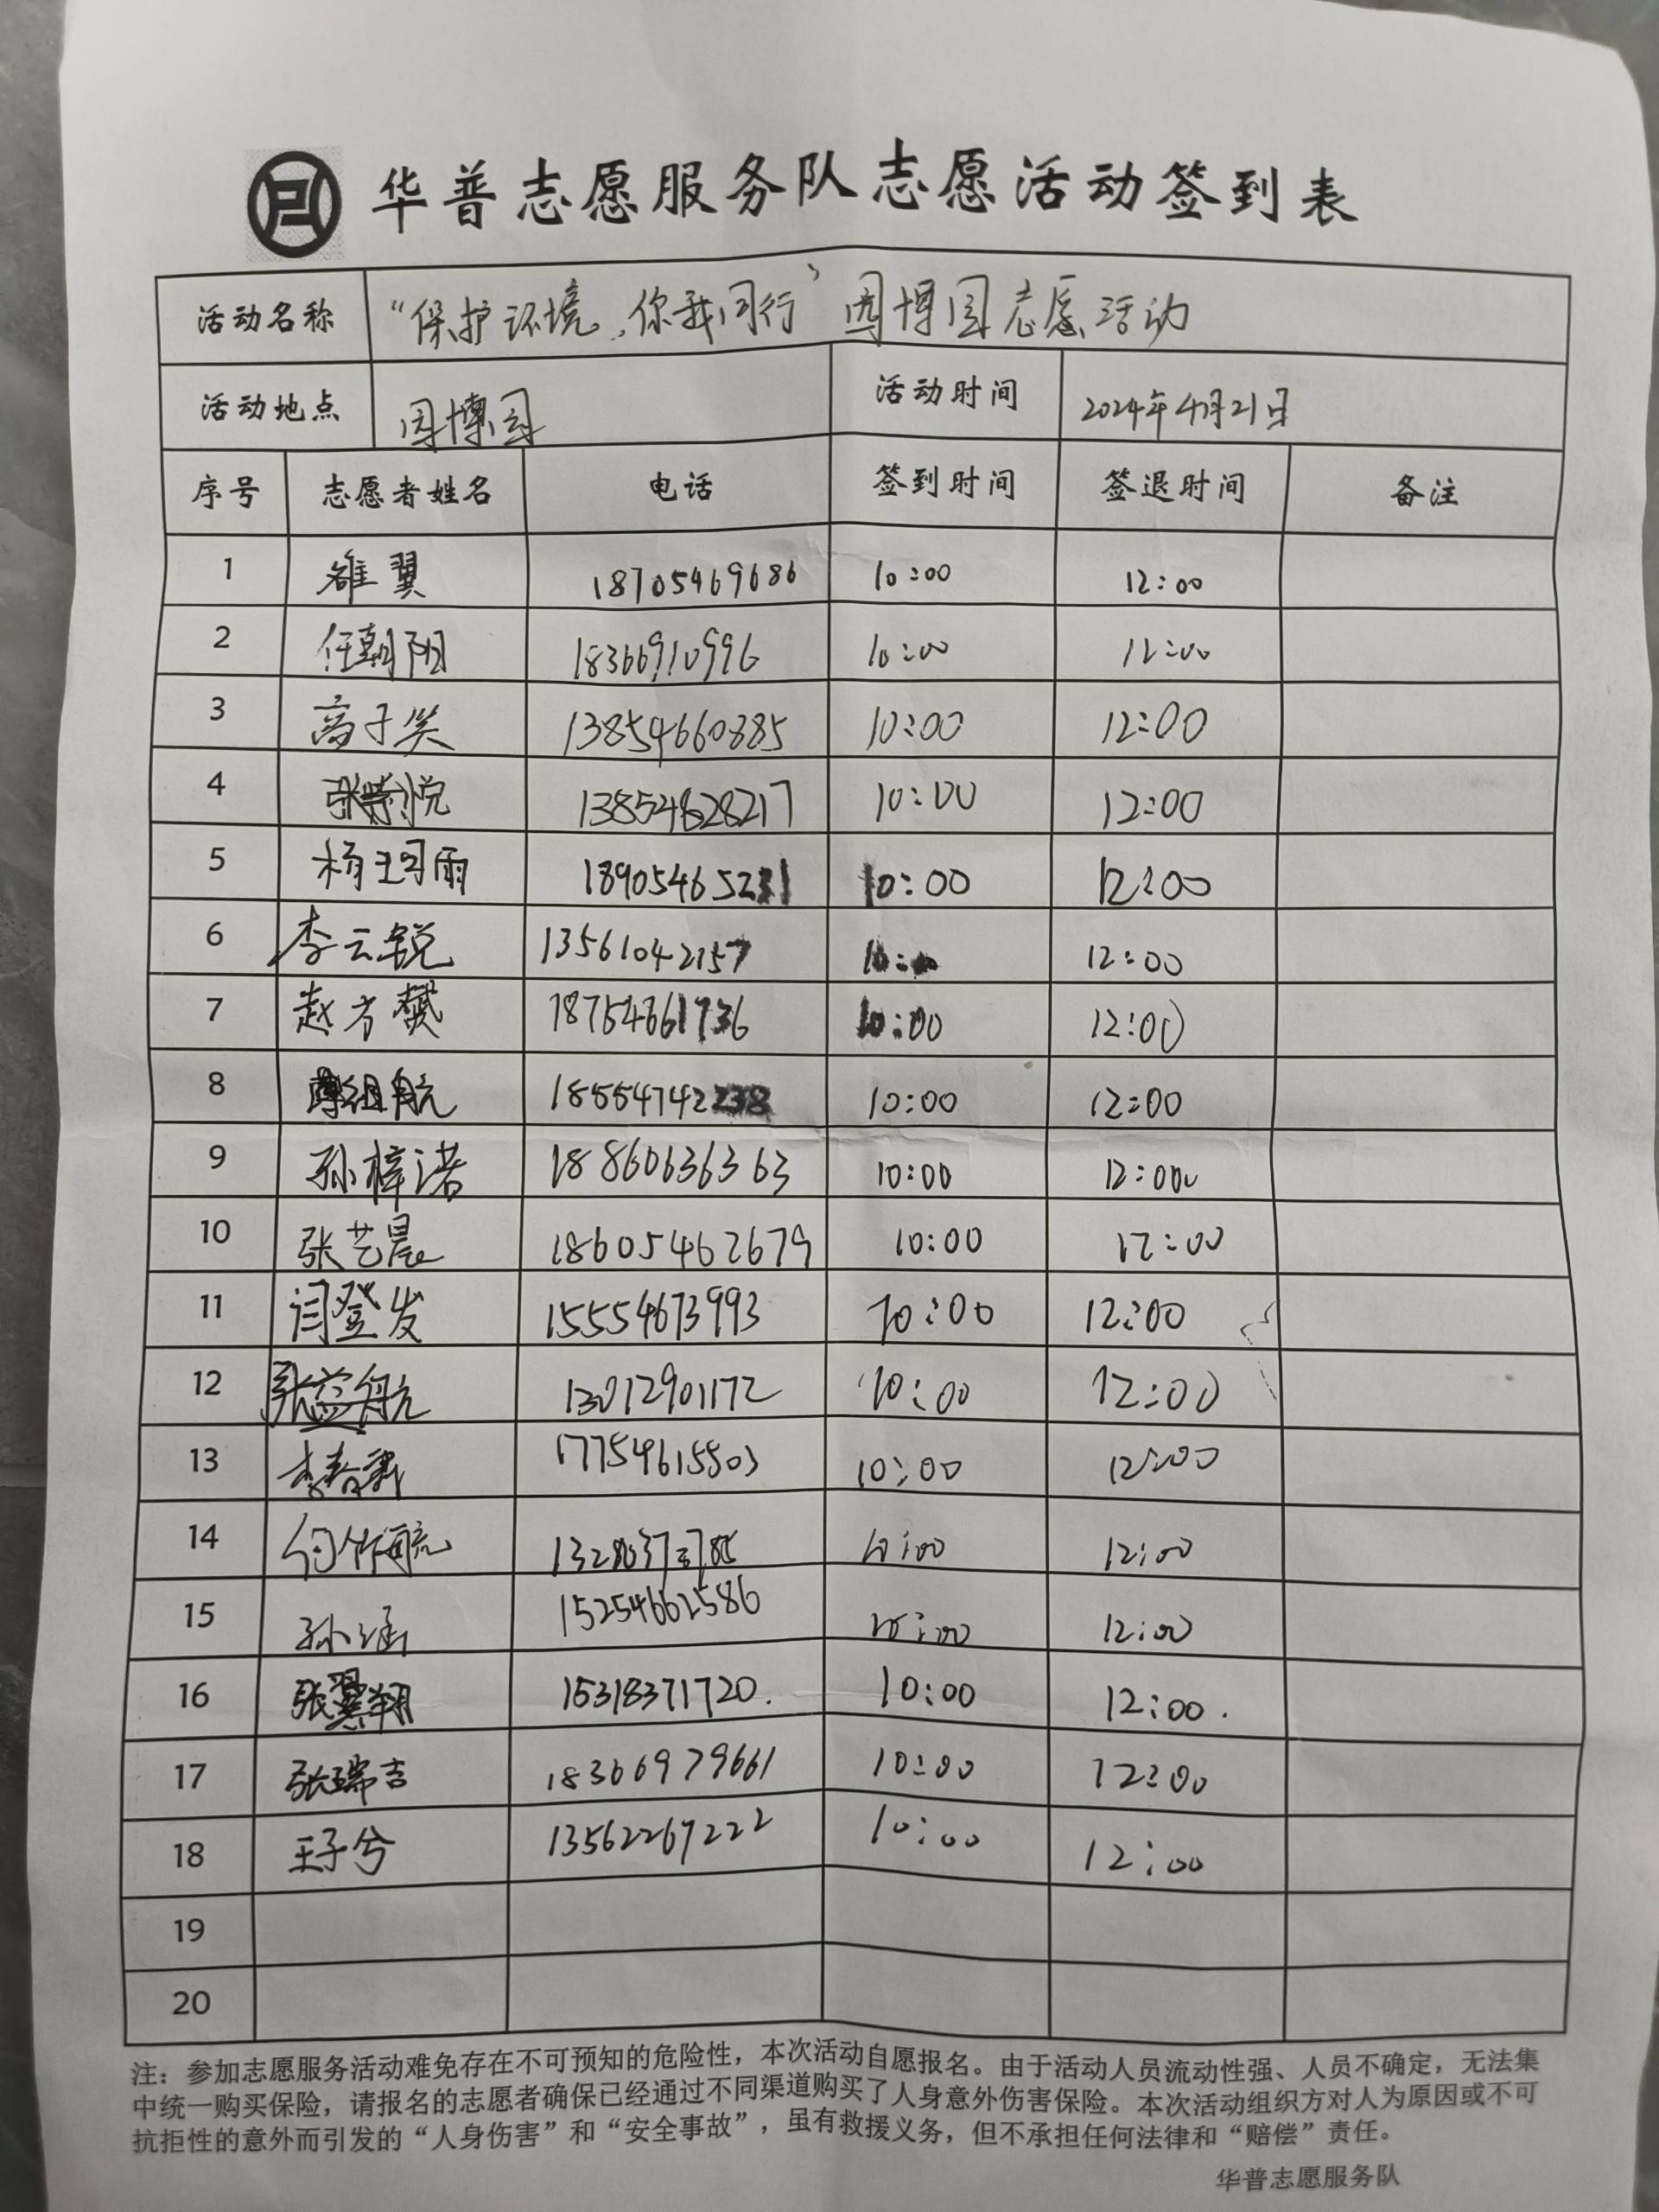 华普志愿服务队志愿活动签到表
活动名称 “保护环境,你我同行” 园博园志愿活动
活动地点 园博园 活动时间 2024年4月21日
序号 志愿者姓名 电话 签到时间 签退时间 备注
1 雒翼 18705469686 10:00 12:00
2 任朝阳 18366910996 10:00 12:00
3 高子 13854660885 10:00 12:00
4 张 悦 13854628217 10:00 12:00
5 杨玛雨 10:00 12:00
6 李云锐 13561042157 10:00 12:00
7 赵方 18754661736 10:00 12:00
8 组航 18554742238 10:00 12:00
9 孙梓诺 18860636363 10:00 12:00
10 张艺晨 18605462679 10:00 12:00
11 闫登发 15554673993 10:00 12:00
12 张益航 13012901172 10:00 12:00
13 李春 17754615503 10:00 12:00
14 10:00 12:00
15 孙涵 15254662586 10:00 12:00
16 张翼翔 15318371720. 10:00 12:00.
17 张瑞吉 18366979661 10:00 12:00
18 王子兮 13562267222 10:00 12:00
19
20
注：参加志愿服务活动难免存在不可预知的危险性，本次活动自愿报名。由于活动人员流动性强、人员不确定，无法集
中统一购买保险，请报名的志愿者确保已经通过不同渠道购买了人身意外伤害保险。本次活动组织方对人为原因或不可
抗拒性的意外而引发的“人身伤害”和“安全事故”，虽有救援义务，但不承担任何法律和“赔偿”责任。
华普志愿服务队